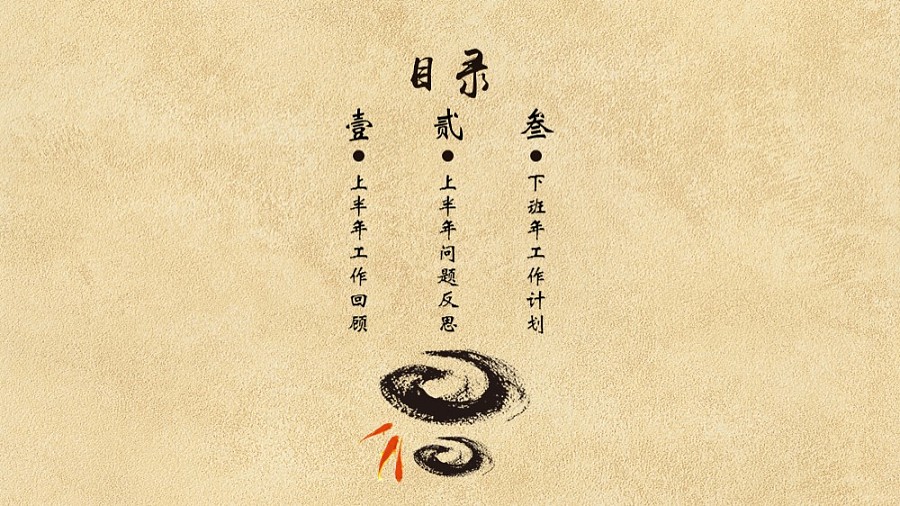 目录
壹
上半年工作回顾
贰
上半年问题反思
叁
下班年工作计划